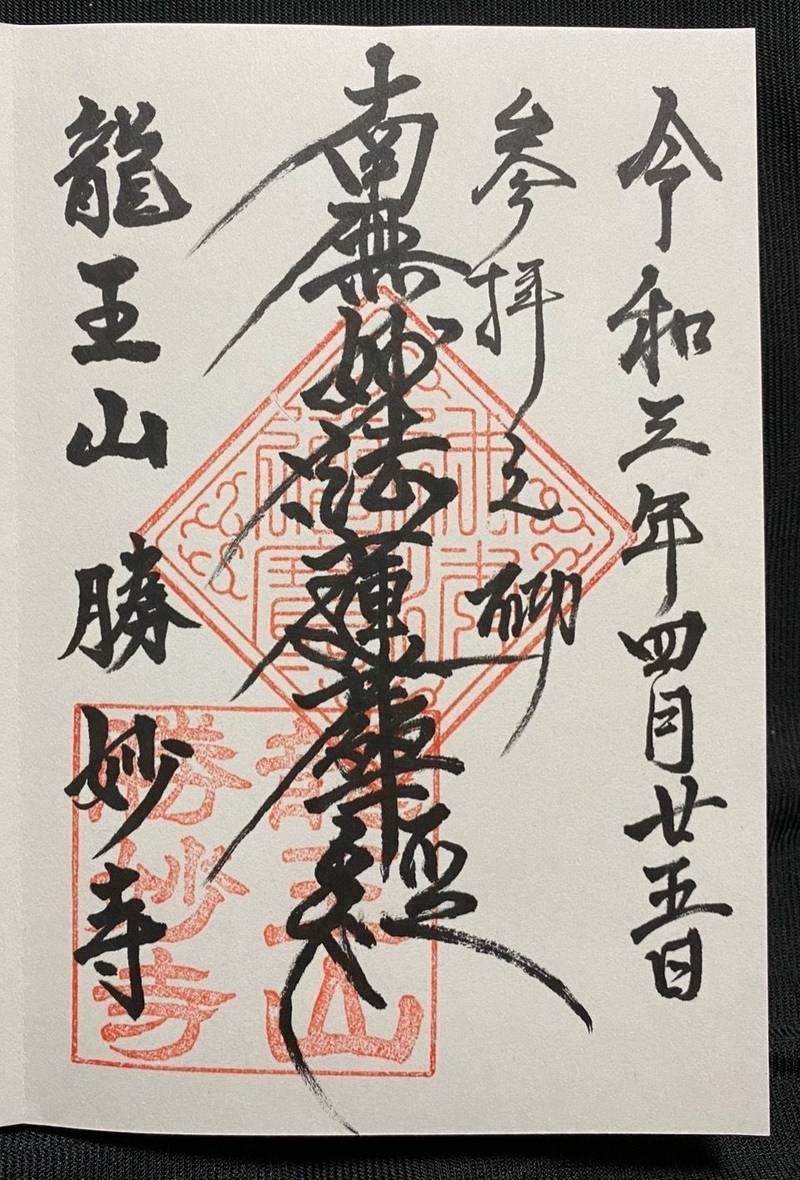 令和三年四月廿五日
参拝之砌
南無妙法蓮華經
龍王山 勝妙寺
龍王山
勝妙寺